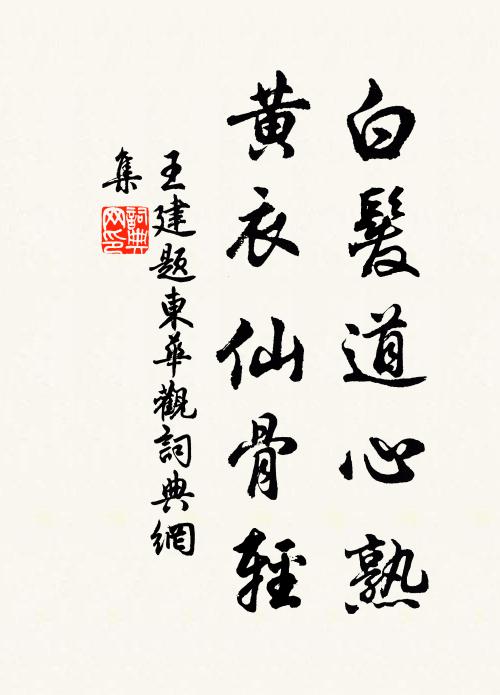 白髮道心熟
黄衣仙骨輕
王建題東華觀詞典網
集
詞典
网印